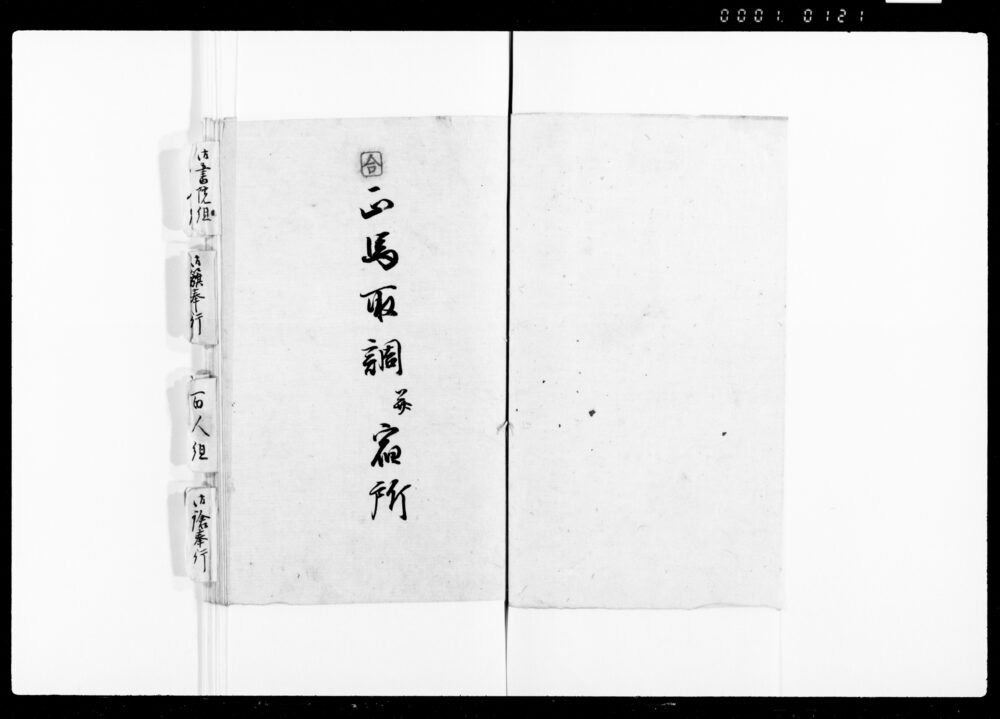 0001. 0121
合
正馬取調并宿所
御書院組
御籏奉行
百人組
御鎗奉行